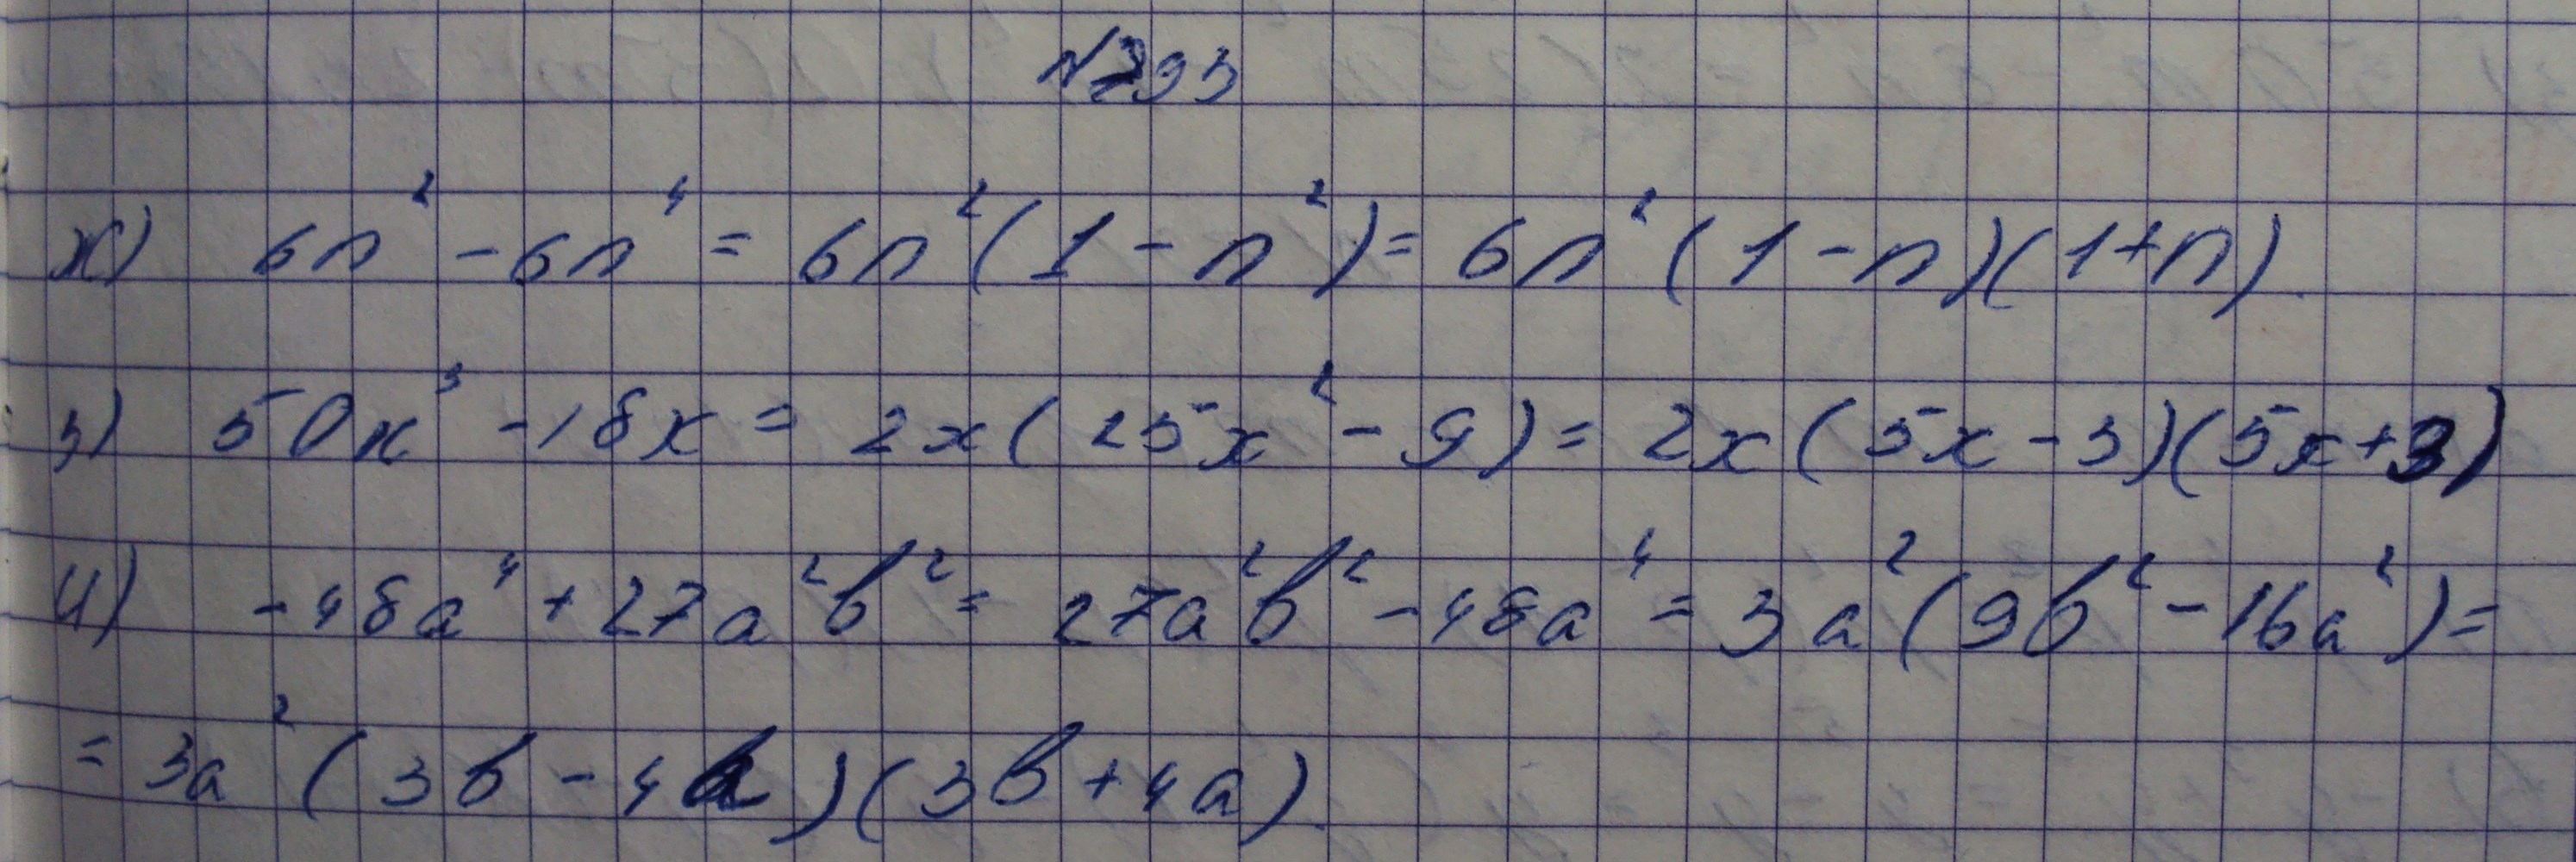 №793
ж) 6n² - 6n⁴ = 6n²(1 - n²) = 6n²(1 - n)(1 + n).
з) 50x³ - 18x = 2x(25x² - 9) = 2x(5x - 3)(5x + 3)
и) -48a⁴ + 27a²b² = 27a²b² - 48a⁴ = 3a²(9b² - 16a²) =
= 3a²(3b - 4a)(3b + 4a).